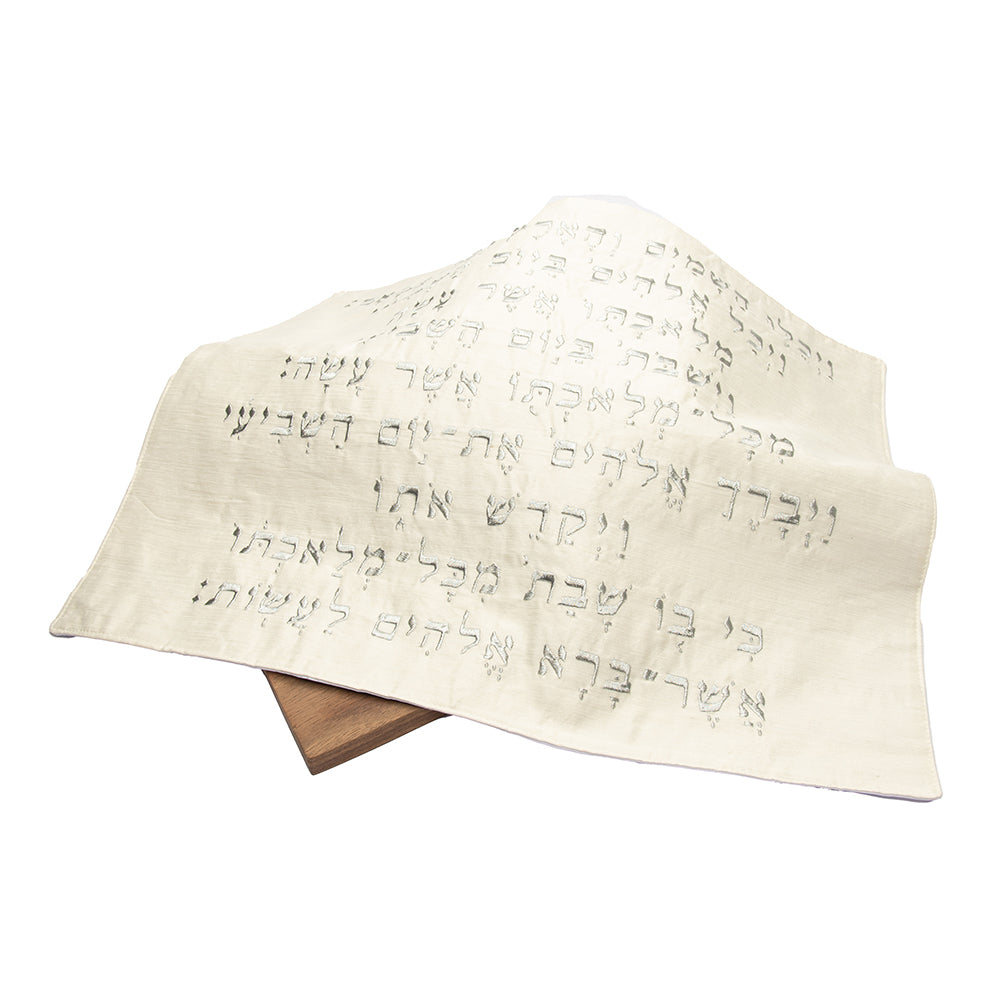 וַיְכֻלּוּ הַשָּׁמַיִם וְהָאָרֶץ
וַיְכַל אֱלֹהִים בַּיּוֹם
מְלַאכְתּוֹ אֲשֶׁר עָשָׂה
וַיִּשְׁבֹּת בַּיּוֹם הַשְּׁבִיעִי
מִכָּל־מְלַאכְתּוֹ אֲשֶׁר עָשָׂה:
וַיְבָרֶךְ אֱלֹהִים אֶת־יוֹם הַשְּׁבִיעִי
וַיְקַדֵּשׁ אֹתוֹ
כִּי בוֹ שָׁבַת מִכָּל־מְלַאכְתּוֹ
אֲשֶׁר־בָּרָא אֱלֹהִים לַעֲשׂוֹת: